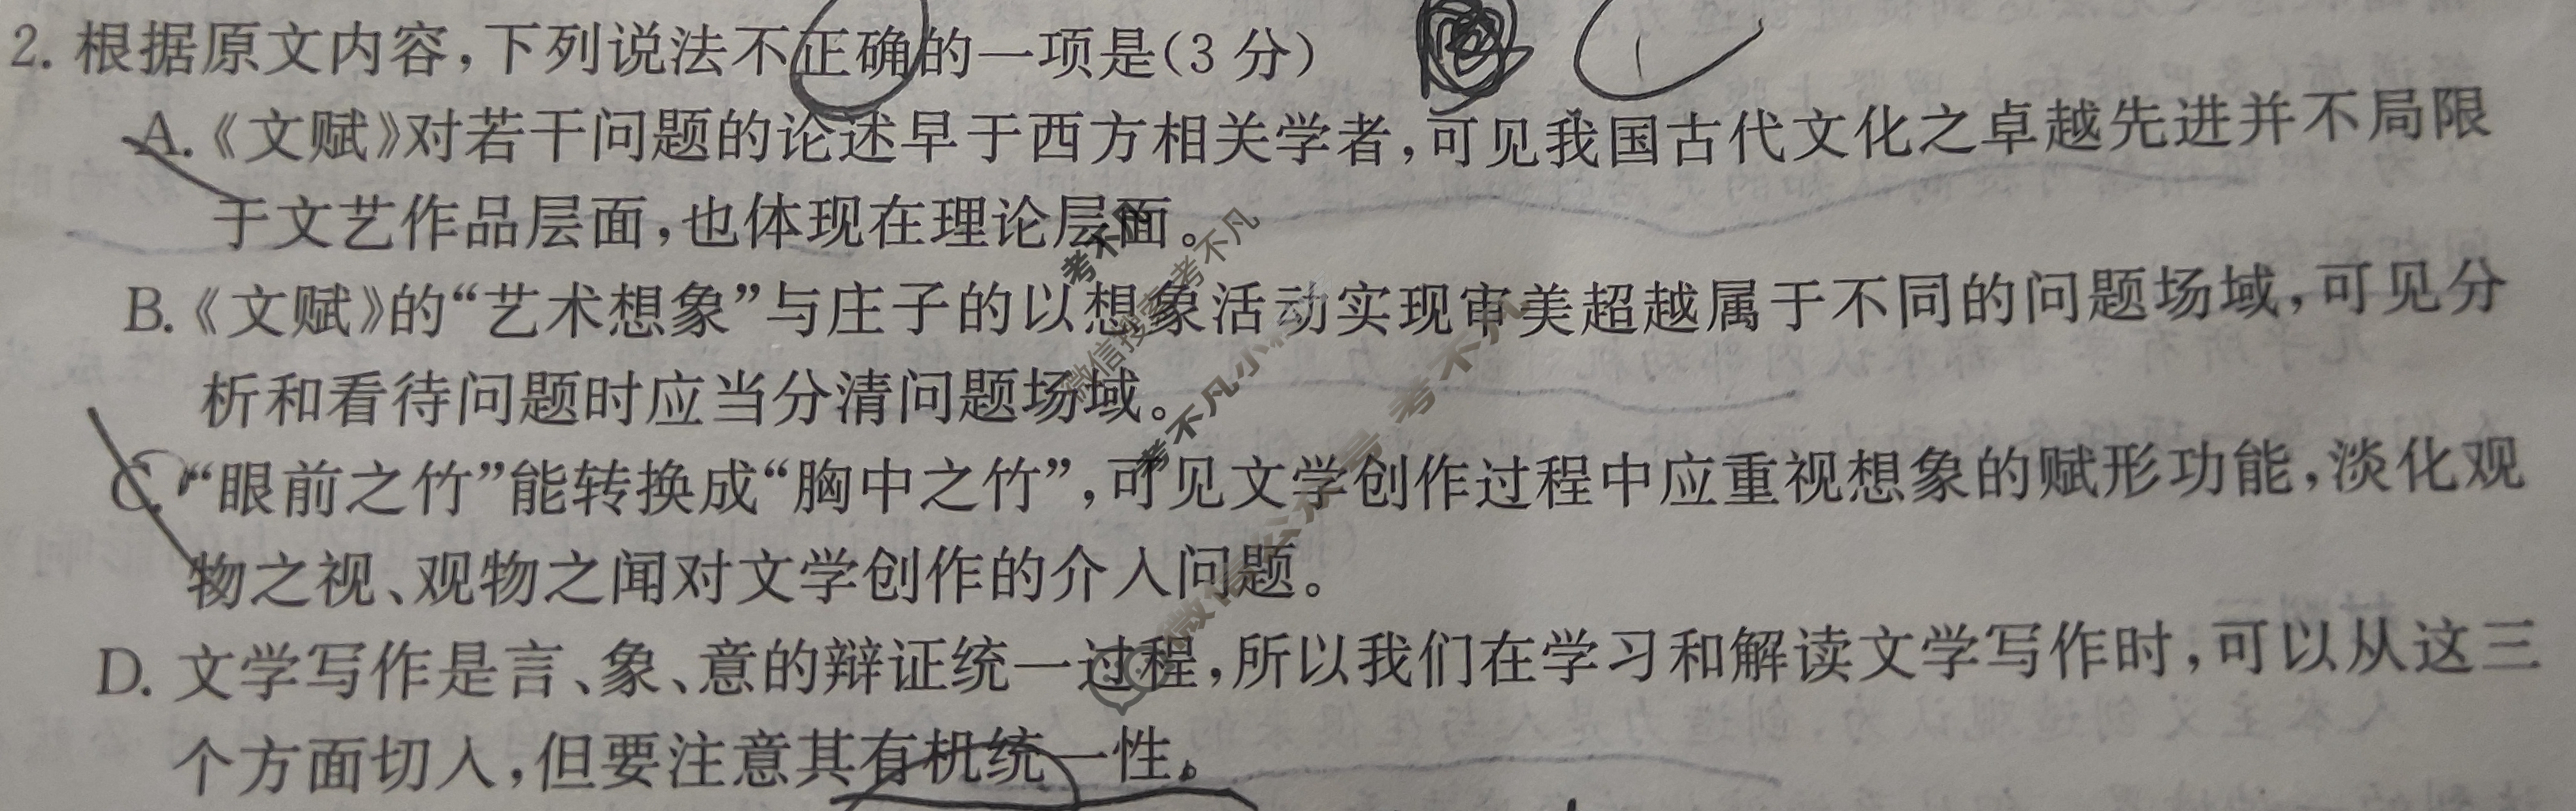 2. 根据原文内容,下列说法不正确的一项是(3分)
A.《文赋》对若干问题的论述早于西方相关学者,可见我国古代文化之卓越先进并不局限
于文艺作品层面,也体现在理论层面。
B.《文赋》的“艺术想象”与庄子的以想象活动实现审美超越属于不同的问题场域,可见分
析和看待问题时应当分清问题场域。
C.“眼前之竹”能转换成“胸中之竹”,可见文学创作过程中应重视想象的赋形功能,淡化观
物之视、观物之闻对文学创作的介入问题。
D. 文学写作是言、象、意的辩证统一过程,所以我们在学习和解读文学写作时,可以从这三
个方面切入,但要注意其有机统一性。